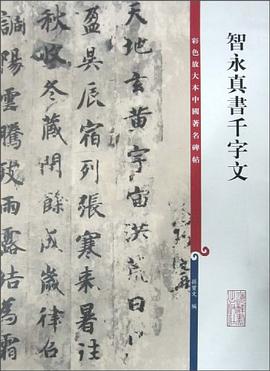 智永真書千字文
彩色放大本中國著名碑帖
孫寶文 編
天地玄黃宇宙洪荒日月
盈昃辰宿列張寒来暑往
秋收冬藏閏餘成歲律召
調陽雲騰致雨露結為霜